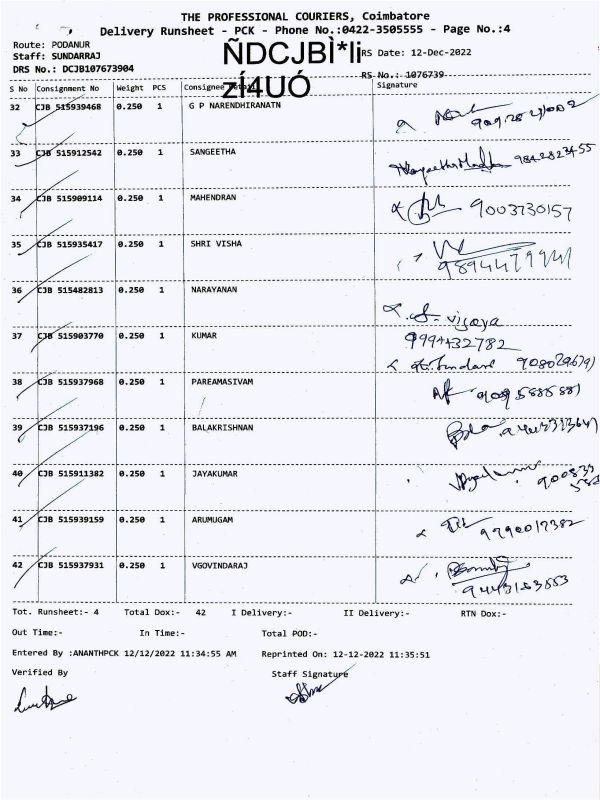 THE PROFESSIONAL COURIERS, Coimbatore
Delivery Runsheet - PCK - Phone No.:0422-3505555 - Page No.:4
Route: PODANUR
Staff: SUNDARRAJ
ÑDCJBÌ*li
RS Date: 12-Dec-2022
DRS No.: DCJB107673904
zÍ4UÓ
RS No.: 1076739
S No Consignment No Weight PCS Consignee Signature
32 CJB 515939468 0.250 1 G P NARENDHIRANATN
33 CJB 515912542 0.250 1 SANGEETHA 9842823455
34 CJB 515909114 0.250 1 MAHENDRAN 9003730157
35 CJB 515935417 0.250 1 SHRI VISHA
36 CJB 515482813 0.250 1 NARAYANAN vijaya
37 CJB 515903770 0.250 1 KUMAR 9994432782
38 CJB 515937968 0.250 1 PAREAMASIVAM
39 CJB 515937196 0.250 1 BALAKRISHNAN
40 CJB 515911382 0.250 1 JAYAKUMAR
41 CJB 515939159 0.250 1 ARUMUGAM 9790017382
42 CJB 515937931 0.250 1 VGOVINDARAJ
Tot. Runsheet:- 4 Total Dox:- 42 I Delivery:- II Delivery:- RTN Dox:-
Out Time:- In Time:- Total POD:-
Entered By :ANANTHPCK 12/12/2022 11:34:55 AM Reprinted On: 12-12-2022 11:35:51
Verified By Staff Signature